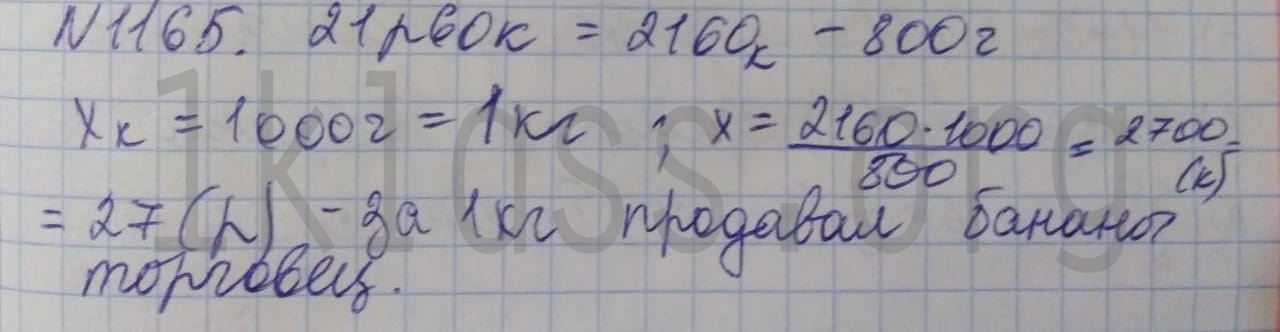 N1165. 21р60к = 2160к - 800г
xк = 1000г = 1кг ; x = 2160·1000/800 = 2700(к) =
= 27(р) - за 1кг продавал бананы
торговец.
1klass.org